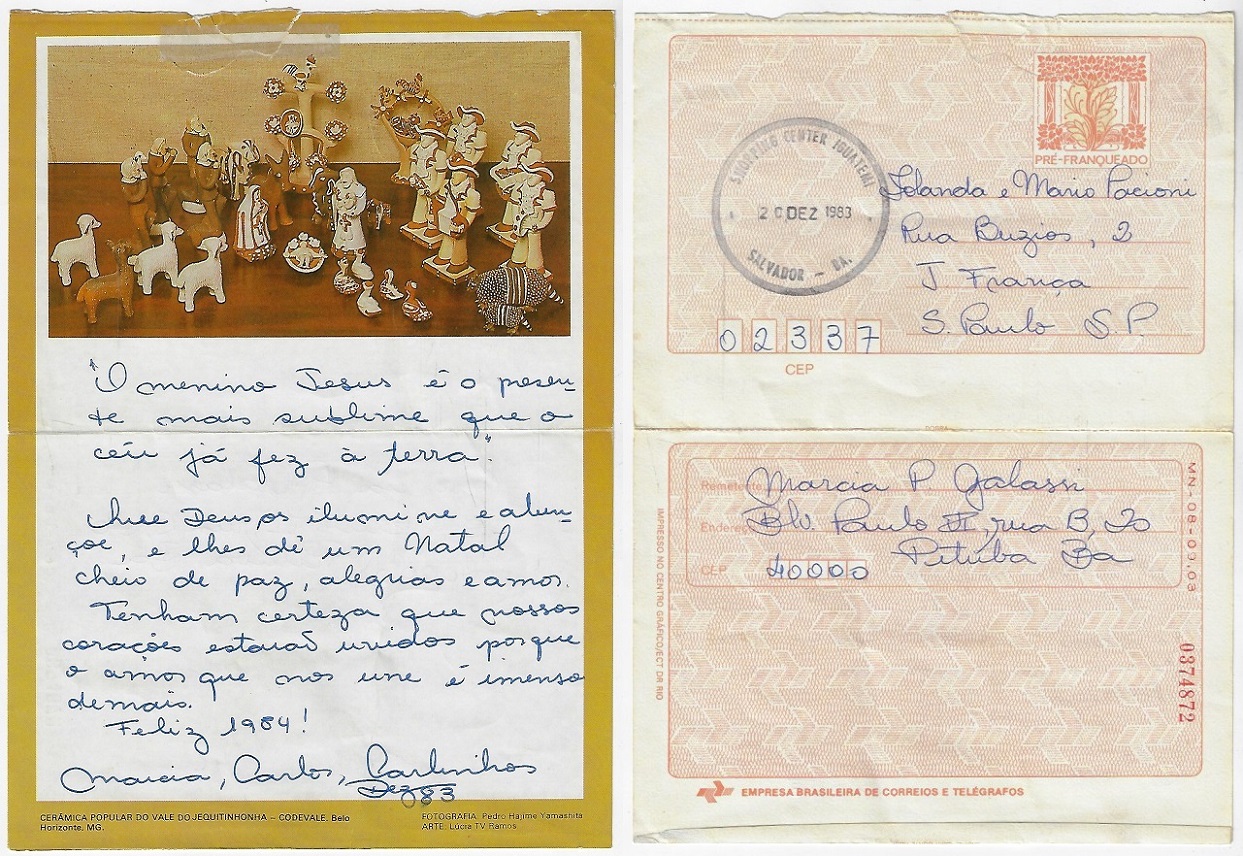 "O menino Jesus é o presen-
te mais sublime que o
céu já fez à terra".
Que Deus os ilumine e aben-
çoe, e lhes dê um Natal
cheio de paz, alegrias e amor.
Tenham certeza que nossos
corações estarão unidos porque
o amor que nos une é imenso
demais.
Feliz 1984!
Marcia, Carlos, Carlinhos
Dez 083
CERÂMICA POPULAR DO VALE DO JEQUITINHONHA – CODEVALE. Belo
Horizonte. MG.
FOTOGRAFIA: Pedro Hajime Yamashita
ARTE: Lúcia TV Ramos
PRÉ-FRANQUEADO
SHOPPING CENTER IGUATEMI
20 DEZ 1983
SALVADOR - BA.
Iolanda e Mario Pacioni
Rua Buzios, 2
J França
S. Paulo S.P.
02337
CEP
Remetente
Marcia P. Galassi
Endereço
Blv. Paulo VI, rua B, 20
Pituba Ba
CEP
40000
MN-08-09,03
IMPRESSO NO CENTRO GRÁFICO/ECT DR RIO
0374872
EMPRESA BRASILEIRA DE CORREIOS E TELÉGRAFOS